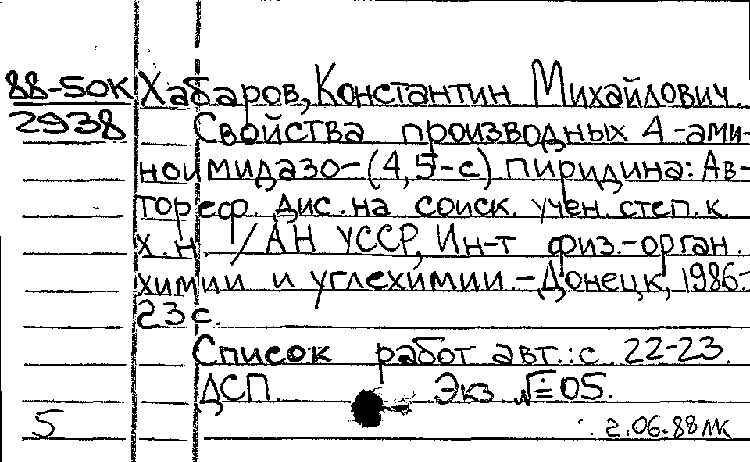 88-50К Хабаров, Константин Михайлович.
2938 Свойства производных 4-ами-
ноимидазо-(4,5-с) пиридина: Ав-
тореф. дис. на соиск. учен. степ. к.
х.н. / АН УССР, Ин-т физ.-орган.
химии и углехимии.-Донецк, 1986-
23 с.
Список работ авт.: с. 22-23.
ДСП. Экз. № 05.
5 2.06.88 ЛК